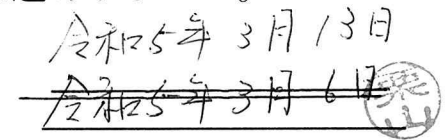 令和5年3月13日
令和5年3月6日